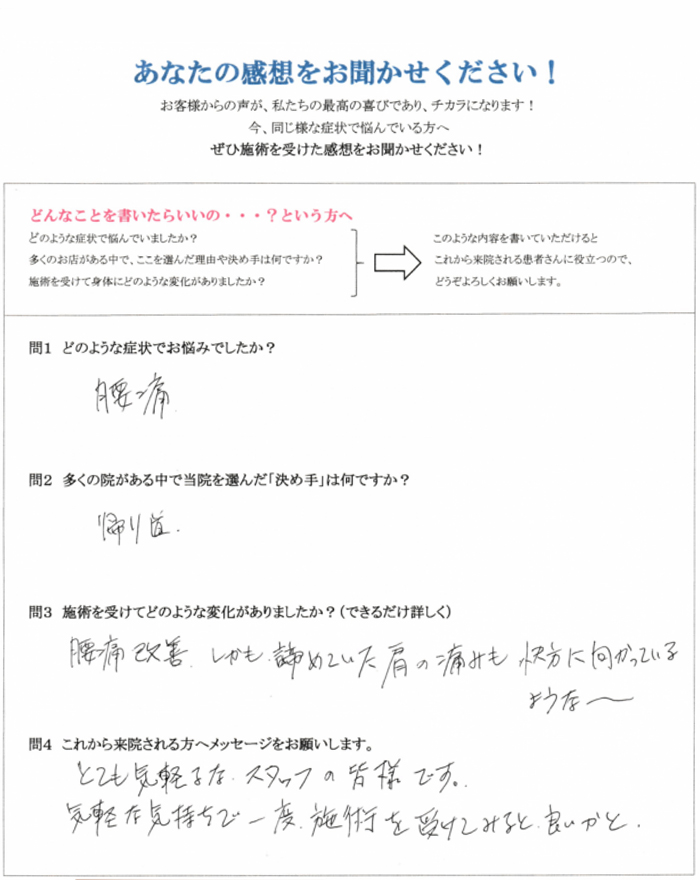 あなたの感想をお聞かせください！
お客様からの声が、私たちの最高の喜びであり、チカラになります！
今、同じ様な症状で悩んでいる方へ
ぜひ施術を受けた感想をお聞かせください！
どんなことを書いたらいいの・・・？という方へ
どのような症状で悩んでいましたか？
多くのお店がある中で、ここを選んだ理由や決め手は何ですか？
施術を受けて身体にどのような変化がありましたか？
このような内容を書いていただけると
これから来院される患者さんに役立つので、
どうぞよろしくお願いします。
問1 どのような症状でお悩みでしたか？
腰痛
問2 多くの院がある中で当院を選んだ「決め手」は何ですか？
帰り道.
問3 施術を受けてどのような変化がありましたか？（できるだけ詳しく）
腰痛改善、しかも、諦めていた肩の痛みも快方に向かっている
ような〜
問4 これから来院される方へメッセージをお願いします。
とても気軽るな、スタッフの皆様です。
気軽な気持ちで一度、施術を受けてみると、良いかと.